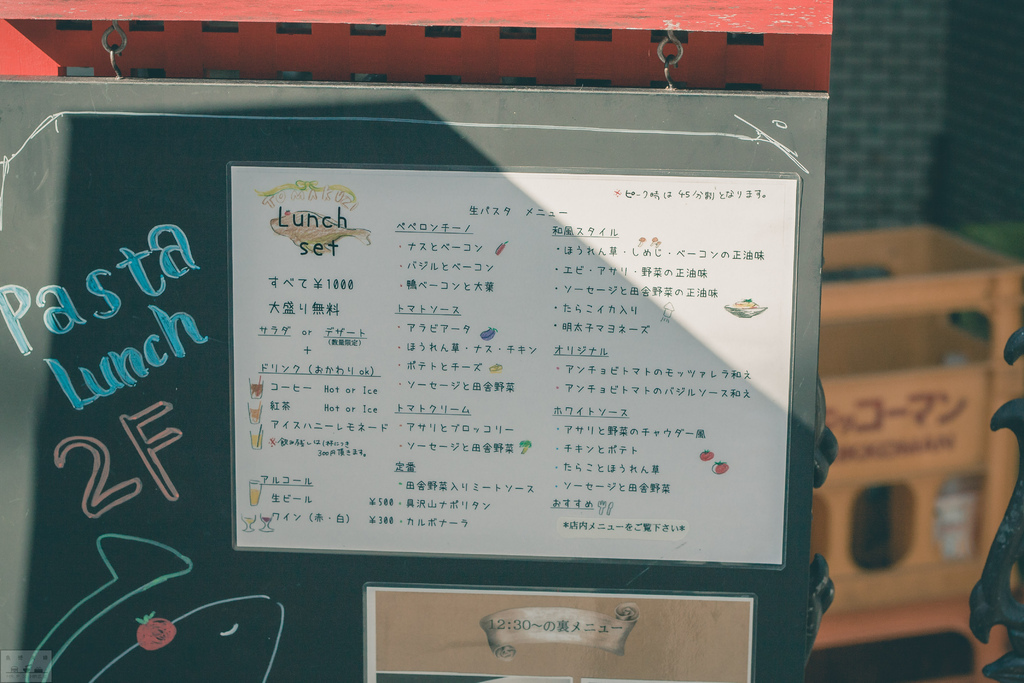 Pasta
Lunch
2F
TOMAKUZI
Lunch
set
すべて¥1000
大盛り無料
サラダ or デザート
(数量限定)
+
ドリンク(おかわりok)
コーヒー Hot or Ice
紅茶 Hot or Ice
アイスハニーレモネード
※飲み残しは1杯につき
300円頂きます。
アルコール
生ビール ¥500
ワイン(赤・白) ¥300
※ピーク時は45分制となります。
生パスタ メニュー
ペペロンチーノ
・ナスとベーコン
・バジルとベーコン
・鴨ベーコンと大葉
トマトソース
・アラビアータ
・ほうれん草・ナス・チキン
・ポテトとチーズ
・ソーセージと田舎野菜
トマトクリーム
・アサリとブロッコリー
・ソーセージと田舎野菜
定番
・田舎野菜入りミートソース
・具沢山ナポリタン
・カルボナーラ
和風スタイル
・ほうれん草・しめじ・ベーコンの正油味
・エビ・アサリ・野菜の正油味
・ソーセージと田舎野菜の正油味
・たらこイカ入り
・明太子マヨネーズ
オリジナル
・アンチョビトマトのモッツァレラ和え
・アンチョビトマトのバジルソース和え
ホワイトソース
・アサリと野菜のチャウダー風
・チキンとポテト
・たらことほうれん草
・ソーセージと田舎野菜
おすすめ
*店内メニューをご覧下さい*
12:30~の裏メニュー
ッコーマン
KIKKOMAN